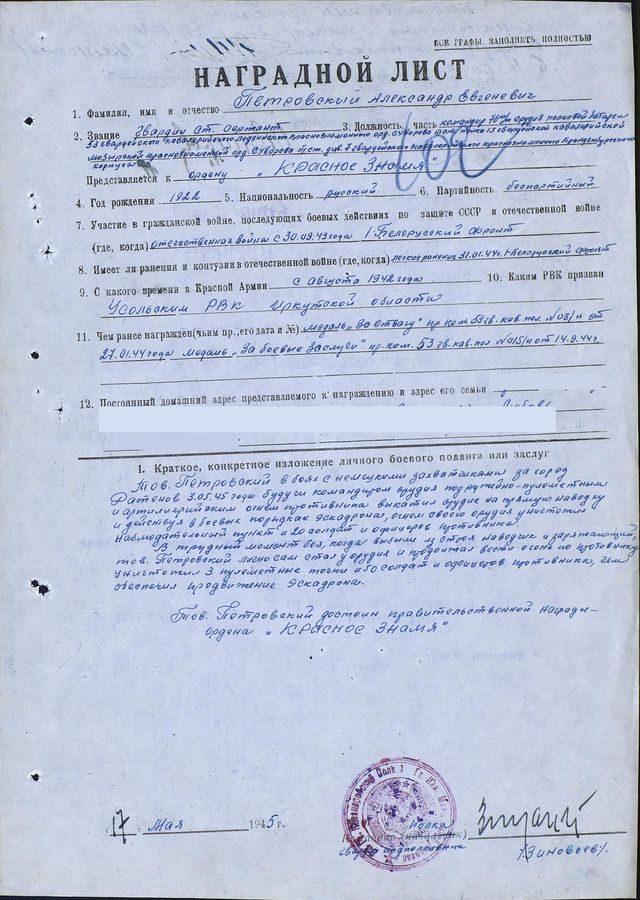 ВСЕ ГРАФЫ ЗАПОЛНЯТЬ ПОЛНОСТЬЮ
НАГРАДНОЙ ЛИСТ
1. Фамилия, имя и отчество Петровский Александр Евгеневич
2. Звание гвардии ст. сержант 3. Должность, часть командир 76 м/м орудия полковой батареи
53 гвардейского кавалерийского Лодзинского краснознаменного орд. Суворова полка 15 гвардейской кавалерийской
мозырской краснознаменной орд. Суворова див. 7 гвардейского кавалерийского краснознаменного Бранденбургского
корпуса
Представляется к ордену „Красное Знамя"
4. Год рождения 1922 5. Национальность русский 6. Партийность беспартийный
7. Участие в гражданской войне, последующих боевых действиях по защите СССР и отечественной войне
(где, когда) отечественная война с 30.09.43 года 1 Белорусский фронт
8. Имеет ли ранения и контузии в отечественной войне (где, когда) легкое ранение 31.01.44г. 1 Белорусский фронт
9. С какого времени в Красной Армии с августа 1942 года 10. Каким РВК призван
Усольским РВК Иркутской области
11. Чем ранее награжден (чьим пр., его дата и №) медаль „За отвагу" пр. ком 53 гв. кав. пол. №03/н от
27.01.44 года медаль „За боевые заслуги" пр. ком. 53 гв. кав. пол №015/н от 14.9.44г.
12. Постоянный домашний адрес представляемого к награждению и адрес его семьи
I. Краткое, конкретное изложение личного боевого подвига или заслуг
Тов. Петровский в боях с немецкими захватчиками за город
Ратенов 3.05.45 года будучи командиром орудия под ружейно-пулеметным
и артиллерийским огнем противника выкатил орудие на прямую наводку
и действуя в боевых порядках эскадрона, огнем своего орудия уничтожил
наблюдательный пункт и 20 солдат и офицеров противника.
В трудный момент боя, когда вышли из строя наводчик и заряжающий,
тов. Петровский лично сам стал у орудия и продолжал вести огонь по противнику
уничтожил 3 пулеметные точки и 50 солдат и офицеров противника, чем
обеспечил продвижение эскадрона.
Тов. Петровский достоин правительственной награды-
ордена „Красное Знамя"
17 Мая 1945 г.
Командир (начальник) полка
гвардии подполковник
/Зиновьев/.